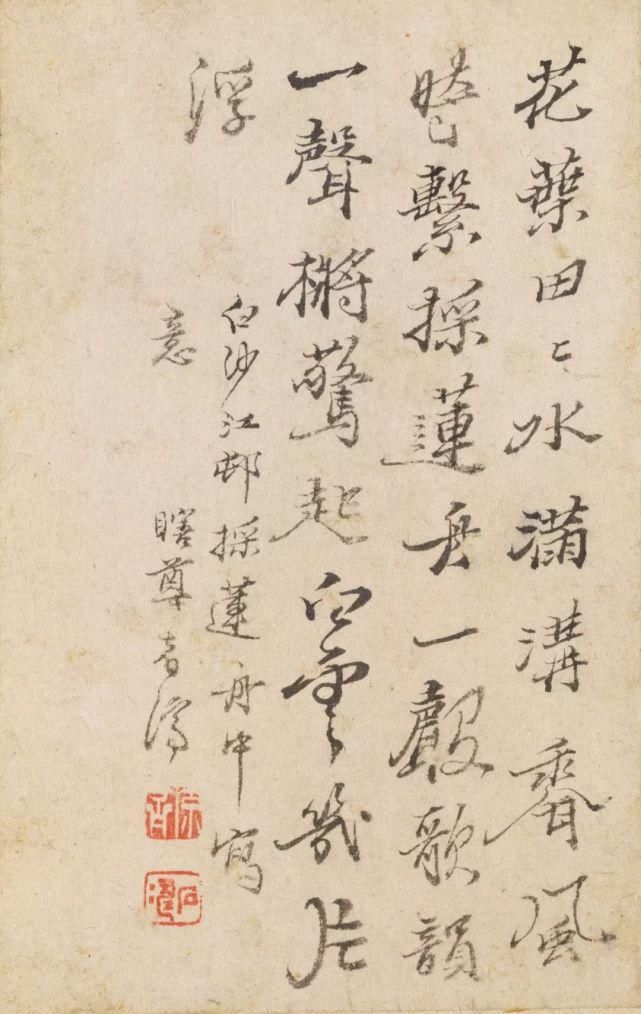 花葉田〻水滿溝香風
暗繫採蓮舟一聲歌韻
一聲槳驚起白雲幾片
浮
白沙江邨採蓮舟中寫
意
瞎尊者濟